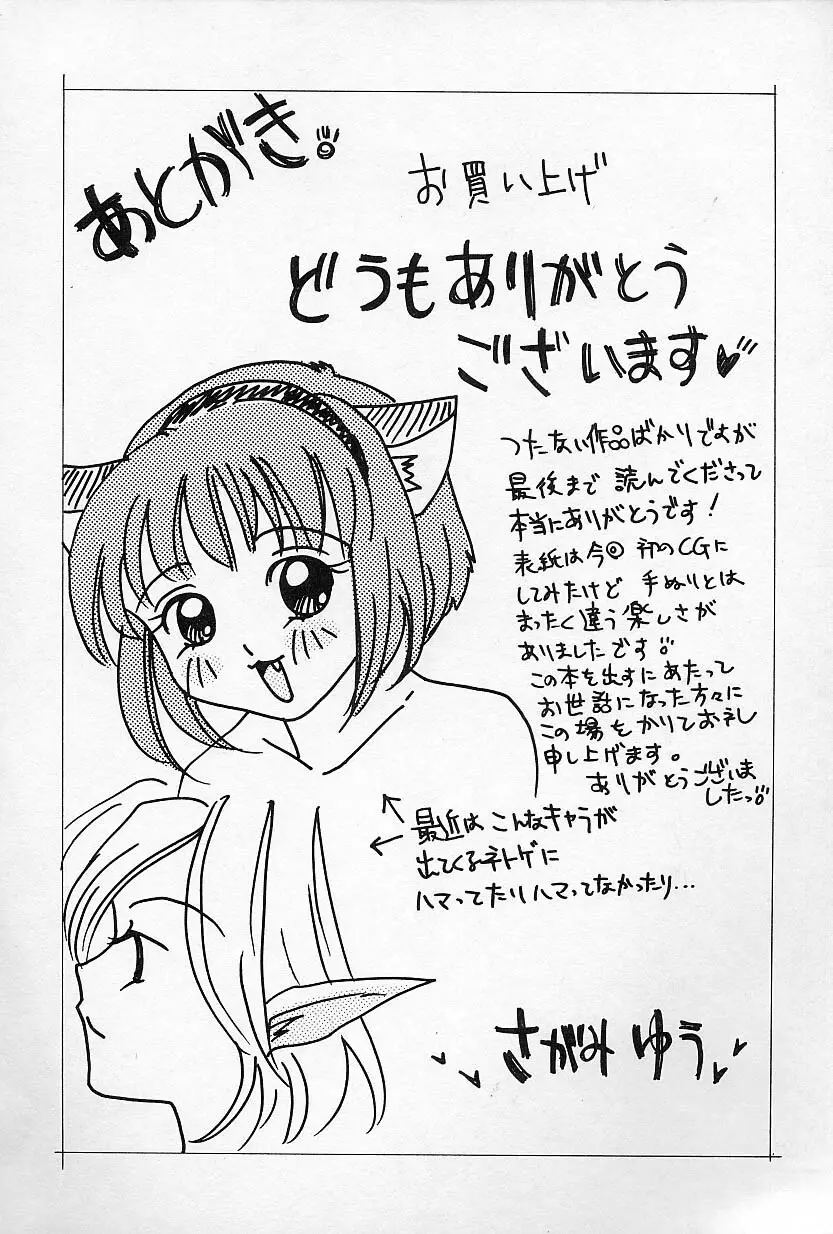 あとがき。
お買い上げ
どうもありがとう
ございます♥
つたない作品ばかりですが
最後まで読んでくださって
本当にありがとうです!
表紙は今回初のCGに
してみたけど手ぬりとは
まったく違う楽しさが
ありましたです。
この本を出すにあたって
お世話になった方々に
この場をかりてお礼
申し上げます。
ありがとうございま
したっ。
最近はこんなキャラが
出てくるネトゲに
ハマってたりハマってなかったり…
さがみゆう